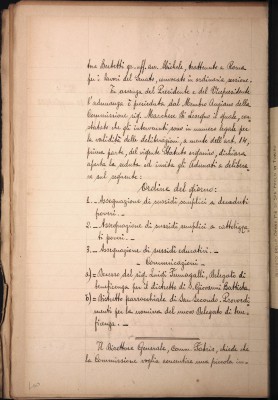 tore Bertetti gr. uff. avv. Michele, trattenuto a Roma
per i lavori del Senato, convocato in ordinaria sessione.
In assenza del Presidente e del Vicepresidente
l'adunanza è presieduta dal Membro Anziano della
Commissione sig. Marchese il quale, con-
statato che gli intervenuti sono in numero legale per
la validità delle deliberazioni, a mente dell'art. 14,
prima parte, del vigente Statuto organico, dichiara
aperta la seduta ed invita gli Adunati a delibera-
re sul seguente:
Ordine del giorno:
1. - Assegnazione di sussidi semplici a decaduti
poveri. -
2. - Assegnazione di sussidi semplici a cattolizza-
ti poveri. -
3. - Assegnazione di sussidi educativi. -
- Comunicazioni -
a) = Decesso del sig. Luigi Fumagalli, Delegato di
beneficenza per il distretto di S. Giovanni Battista.
b) = Distretto parrocchiale di San Secondo. Provvedi-
menti per la nomina del nuovo Delegato di bene-
ficenza. -
Il Direttore Generale, comm. Fabris, chiede che
la Commissione voglia consentire una piccola in-